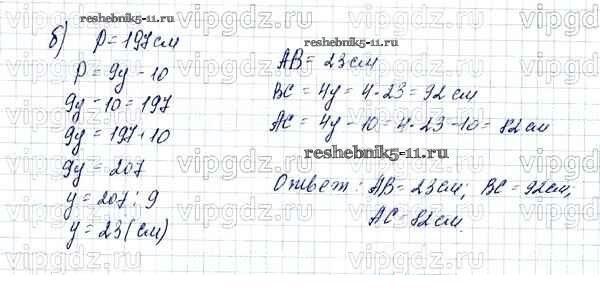 б) P = 197 см
P = 9y - 10
9y - 10 = 197
9y = 197 + 10
9y = 207
y = 207 : 9
y = 23 (см)
reshebnik5-11.ru
AB = 23 см
BC = 4y = 4 · 23 = 92 см
AC = 4y - 10 = 4 · 23 - 10 = 82 см
reshebnik5-11.ru
Ответ: AB = 23 см; BC = 92 см;
AC = 82 см.
reshebnik5-11.ru
vipgdz.ru